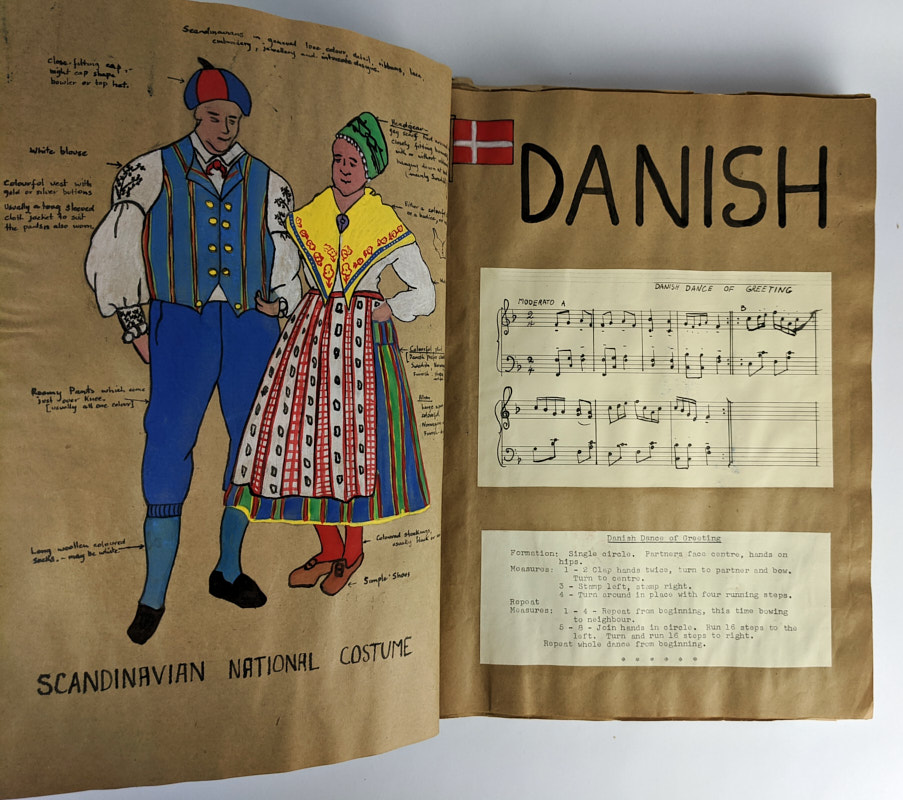 Scandinavians - general love colour, detail, ribbons, lace,
embroidery, jewellery and intricate designs.
Close-fitting cap,-
night cap shape
bowler or top hat.
White blouse
Colourful vest with
gold or silver buttons
Usually a long sleeved
cloth jacket to suit
the pants also worn.
Roomy Pants which come
just over knee.
[usually all one colour]
Long woollen coloured
socks. - may be white
Headgear-
gay scarf
closely fitting
with or without
hanging down at
Either a colourful
or a bodice,
Colourful
Coloured stockings,
usually black or
Simple Shoes
SCANDINAVIAN NATIONAL COSTUME
DANISH
DANISH DANCE OF GREETING
MODERATO A
B
Danish Dance of Greeting
Formation: Single circle. Partners face centre, hands on
hips.
Measures: 1 - 2 Clap hands twice, turn to partner and bow.
Turn to centre.
3 - Stamp left, stamp right.
4 - Turn around in place with four running steps.
Repeat
Measures: 1 - 4 - Repeat from beginning, this time bowing
to neighbour.
5 - 8 - Join hands in circle. Run 16 steps to the
left. Turn and run 16 steps to right.
Repeat whole dance from beginning.